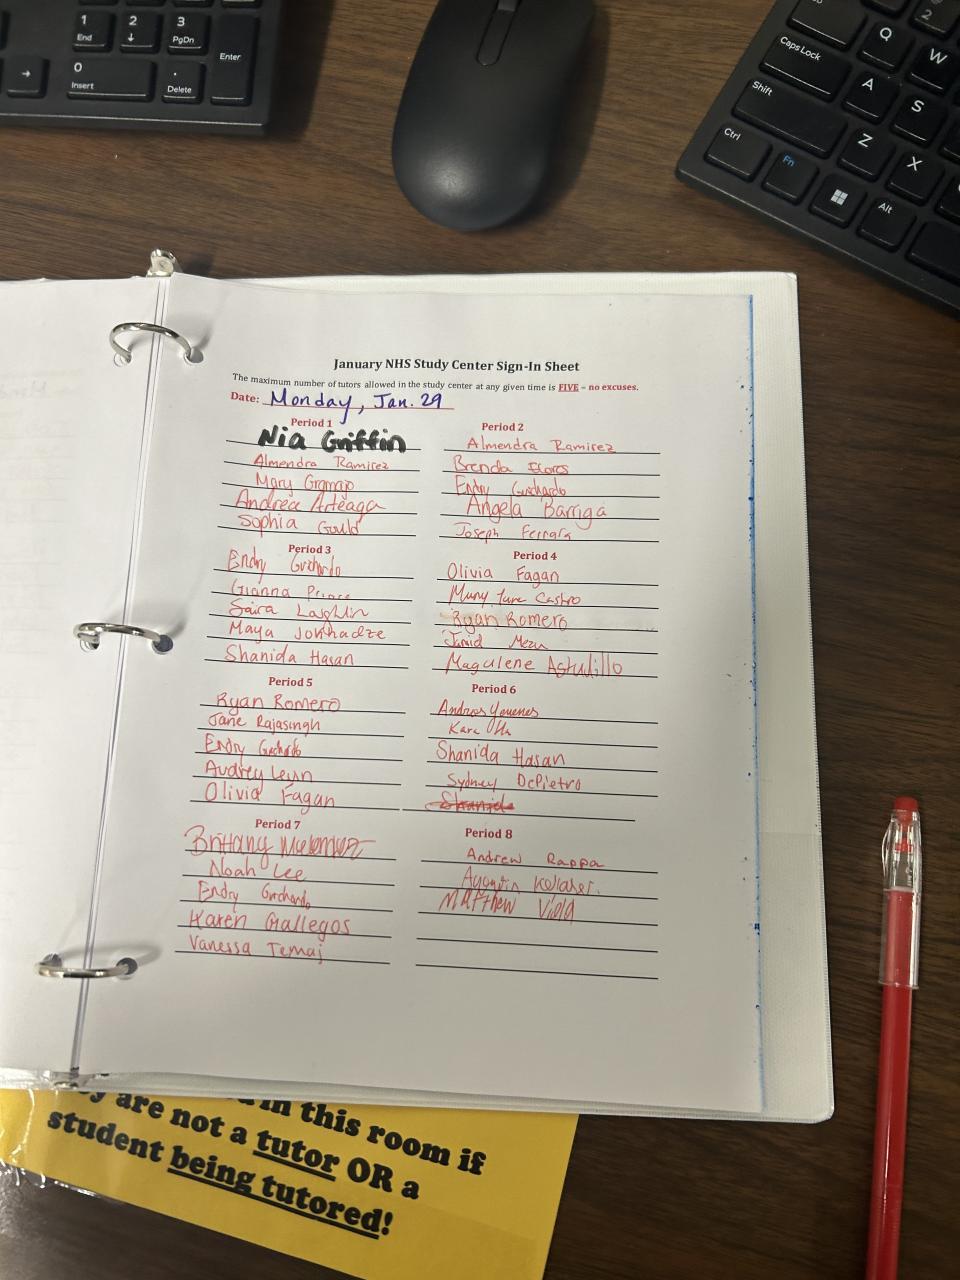 1
End
2
↓
3
PgDn
Enter
→
0
Insert
.
Delete
Caps Lock
Shift
Ctrl
Fn
Alt
Q
W
A
S
Z
X
2
January NHS Study Center Sign-In Sheet
The maximum number of tutors allowed in the study center at any given time is FIVE – no excuses.
Date: Monday, Jan. 29
Period 1
Nia Griffin
Almendra Ramirez
Mary
Andrea Arteaga
Sophia Gould
Period 2
Almendra Ramirez
Brenda Flores
Endry Guichardo
Angela Barriga
Joseph Ferrara
Period 3
Endry Guichardo
Gianna Prince
Saira
Maya Jokhadze
Shanida Hasan
Period 4
Olivia Fagan
Castro
Ryan Romero
Magdlene Astudillo
Period 5
Ryan Romero
Jane Rajasingh
Endry Guichardo
Audrey
Olivia Fagan
Period 6
Kara
Shanida Hasan
Sydney DePietro
Shanida
Period 7
Brittany
Noah Lee
Endry Guichardo
Karen Gallegos
Vanessa Temaj
Period 8
Andrew Rappa
Matthew Viola
in this room if
are not a tutor OR a
student being tutored!